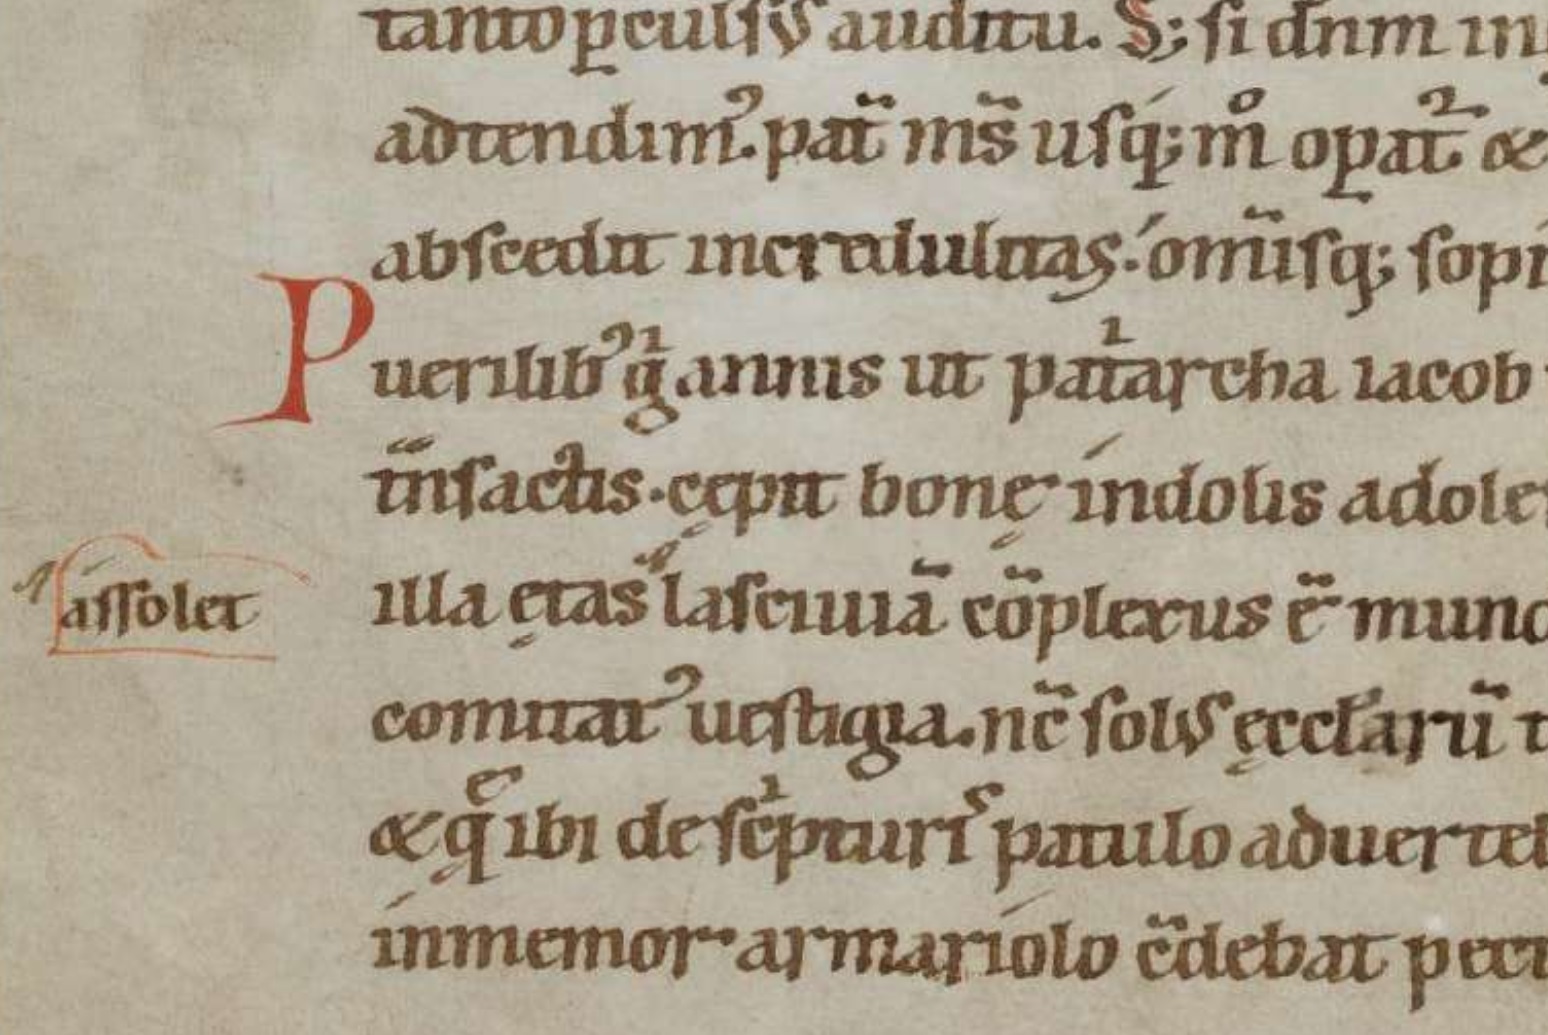 tanto p̲culsꝰ auditu. S; si dn̄m in
adtendimꝰ. pat̄ ms̄ usq; mº op̲at᷑ &
abscedit incredulitas. om̄isq; sopi
Puerilibꝰ gⁱ annis ut patⁱarcha iacob
tn̄sactis. cępit bonę indolis adole
assolet
illa ętas lasciuiā cōplexus ē mund
comitatꝰ uestigia. nc̄ solū ęccl̄arū t
& qͤ ibi de scⁱpturis patulo aduerteb
inmemor armariolo c̄debat pect